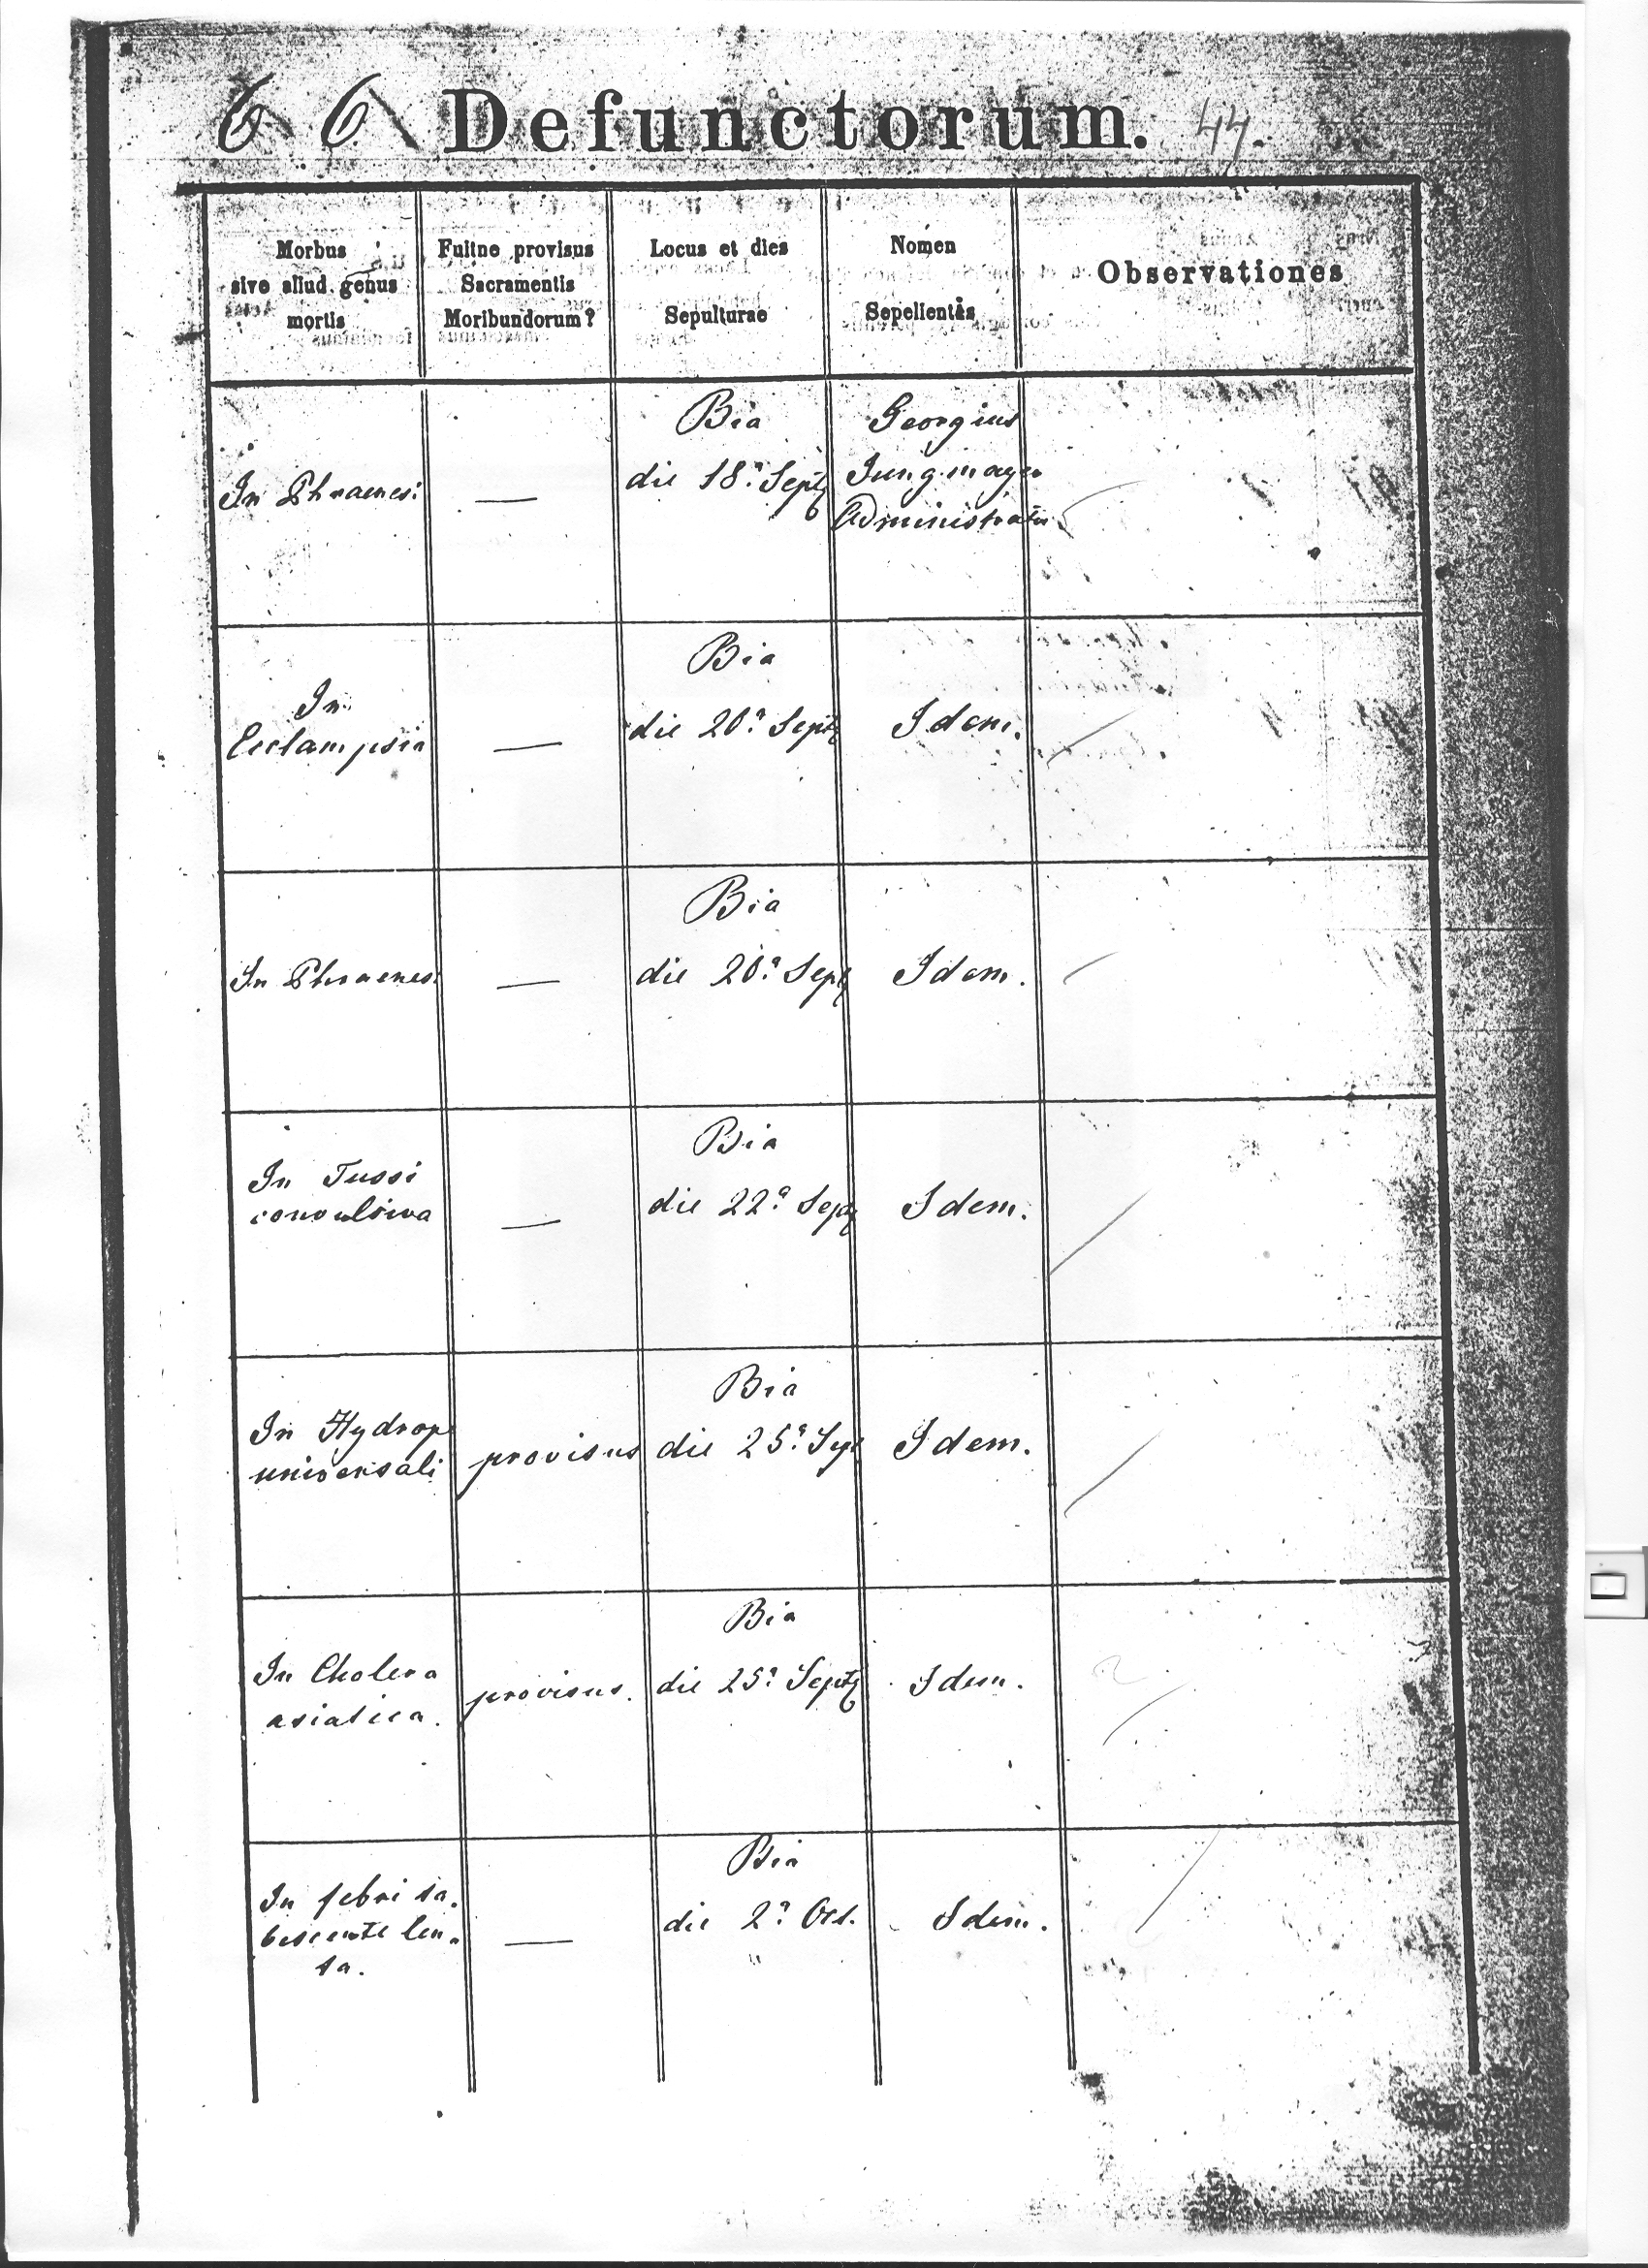 6 6 Defunctorum. 44.
Morbus
sive aliud genus
mortis
Fuitne provisus
Sacramentis
Moribundorum?
Locus et dies
Sepulturae
Nomen
Sepelientis
Observationes
In Phraenesi
—
Bia
die 18ª Sept
Georgius
Jungmayer
Administrator
In
Ecclampsia
—
Bia
die 20ª Sept
Idem.
In Phraenesi
—
Bia
die 20ª Sept
Idem.
In Tussi
convulsiva
—
Bia
die 22ª Sept
Idem.
In Hydrope
universali
provisus
Bia
die 25ª Sept
Idem.
In Cholera
asiatica.
provisus.
Bia
die 25ª Sept
Idem.
In febri ta-
bescente len-
ta.
—
Bia
die 2ª Oct.
Idem.